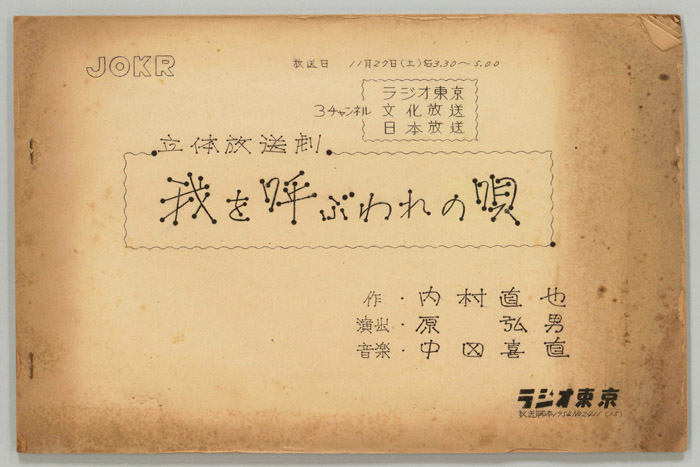 JOKR
放送日 11月27日(土)后3.30~5.00
ラジオ東京
3チャンネル 文化放送
日本放送
立体放送劇
我を呼ぶわれの唄
作・内村直也
演出・原 弘男
音楽・中田喜直
ラジオ東京
放送脚本1954